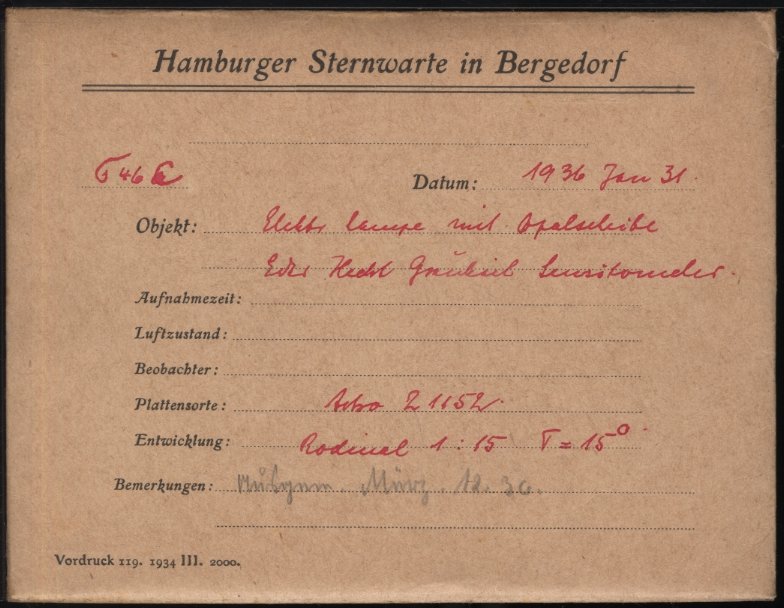 Hamburger Sternwarte in Bergedorf
Datum: 1936 Jan 31.
Objekt: Elektr lampe mit Opalscheibe
Eder Hecht Graukeil Sensitometer.
Aufnahmezeit:
Luftzustand:
Beobachter:
Plattensorte: Astro Z 1152
Entwicklung: Rodinal 1:15 T = 15°
Bemerkungen: März
Vordruck 119. 1934 III. 2000.